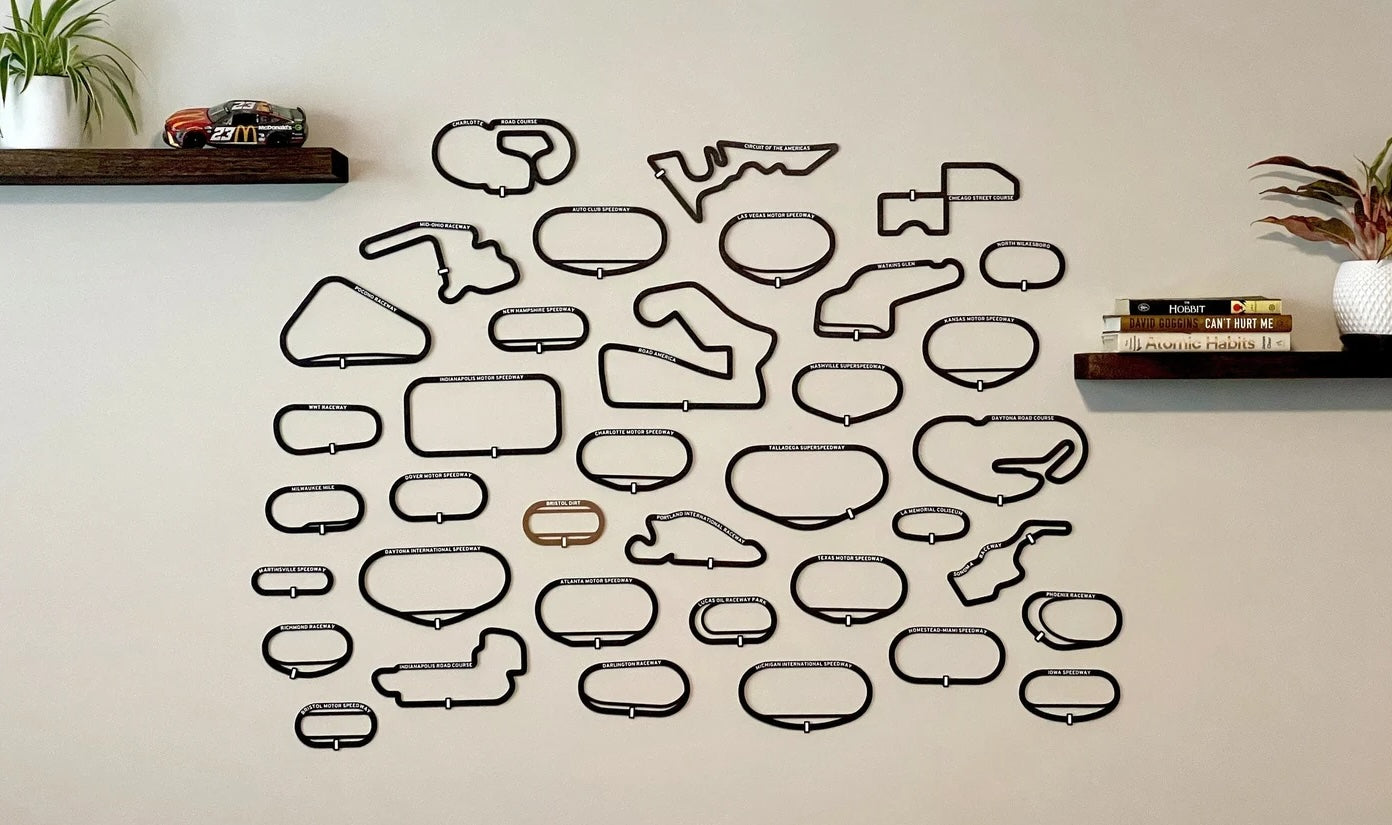 23
23
McDonald's
CHARLOTTE ROAD COURSE
CIRCUIT OF THE AMERICAS
CHICAGO STREET COURSE
MID-OHIO RACEWAY
AUTO CLUB SPEEDWAY
LAS VEGAS MOTOR SPEEDWAY
NORTH WILKESBORO
WATKINS GLEN
POCONO RACEWAY
NEW HAMPSHIRE SPEEDWAY
ROAD AMERICA
KANSAS MOTOR SPEEDWAY
THE
HOBBIT
DAVID GOGGINS CAN'T HURT ME
Atomic Habits
INDIANAPOLIS MOTOR SPEEDWAY
NASHVILLE SUPERSPEEDWAY
WWT RACEWAY
CHARLOTTE MOTOR SPEEDWAY
TALLADEGA SUPERSPEEDWAY
DAYTONA ROAD COURSE
MILWAUKEE MILE
DOVER MOTOR SPEEDWAY
BRISTOL DIRT
PORTLAND INTERNATIONAL RACEWAY
LA MEMORIAL COLISEUM
SONOMA RACEWAY
MARTINSVILLE SPEEDWAY
DAYTONA INTERNATIONAL SPEEDWAY
ATLANTA MOTOR SPEEDWAY
LUCAS OIL RACEWAY PARK
TEXAS MOTOR SPEEDWAY
PHOENIX RACEWAY
RICHMOND RACEWAY
INDIANAPOLIS ROAD COURSE
DARLINGTON RACEWAY
MICHIGAN INTERNATIONAL SPEEDWAY
HOMESTEAD-MIAMI SPEEDWAY
IOWA SPEEDWAY
BRISTOL MOTOR SPEEDWAY